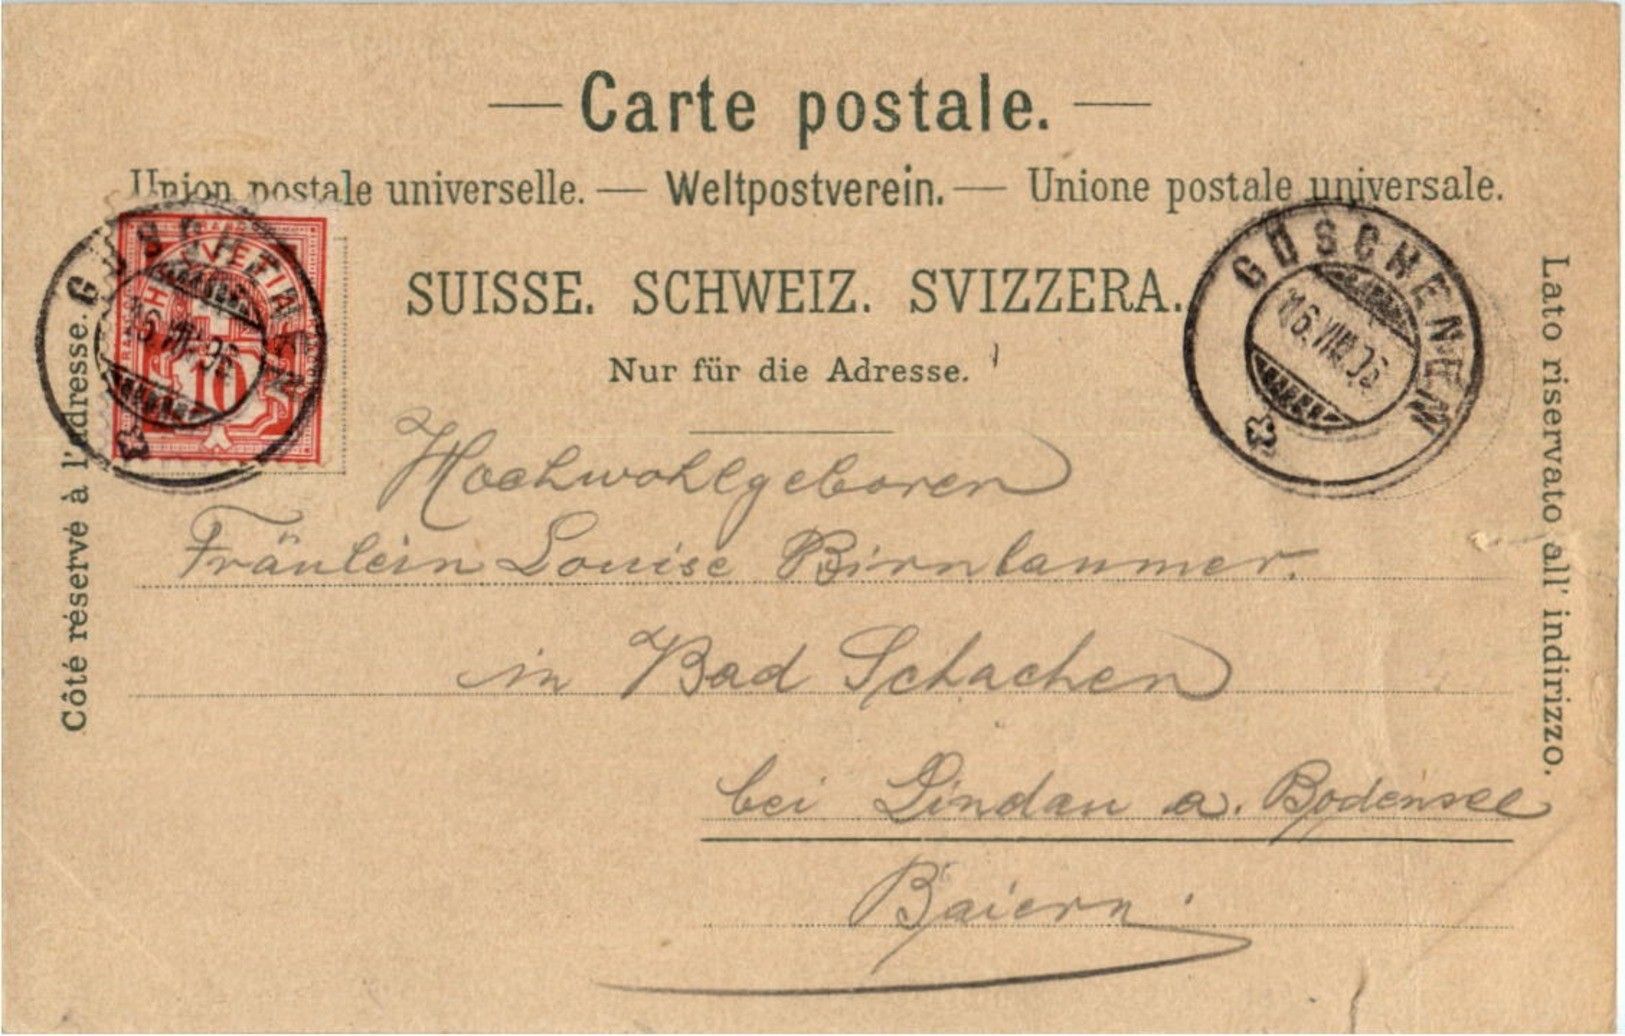 Carte postale.
Union postale universelle. — Weltpostverein. — Unione postale universale.
SUISSE. SCHWEIZ. SVIZZERA.
Nur für die Adresse.
Côté réservé à l'adresse.
Lato riservato all' indirizzo.
GÖSCHENEN
10
GÖSCHENEN
Hochwohlgeboren
Fräulein Louise Birnlaumer.
in Bad Schachen
bei Lindau a. Bodensee
Baiern.